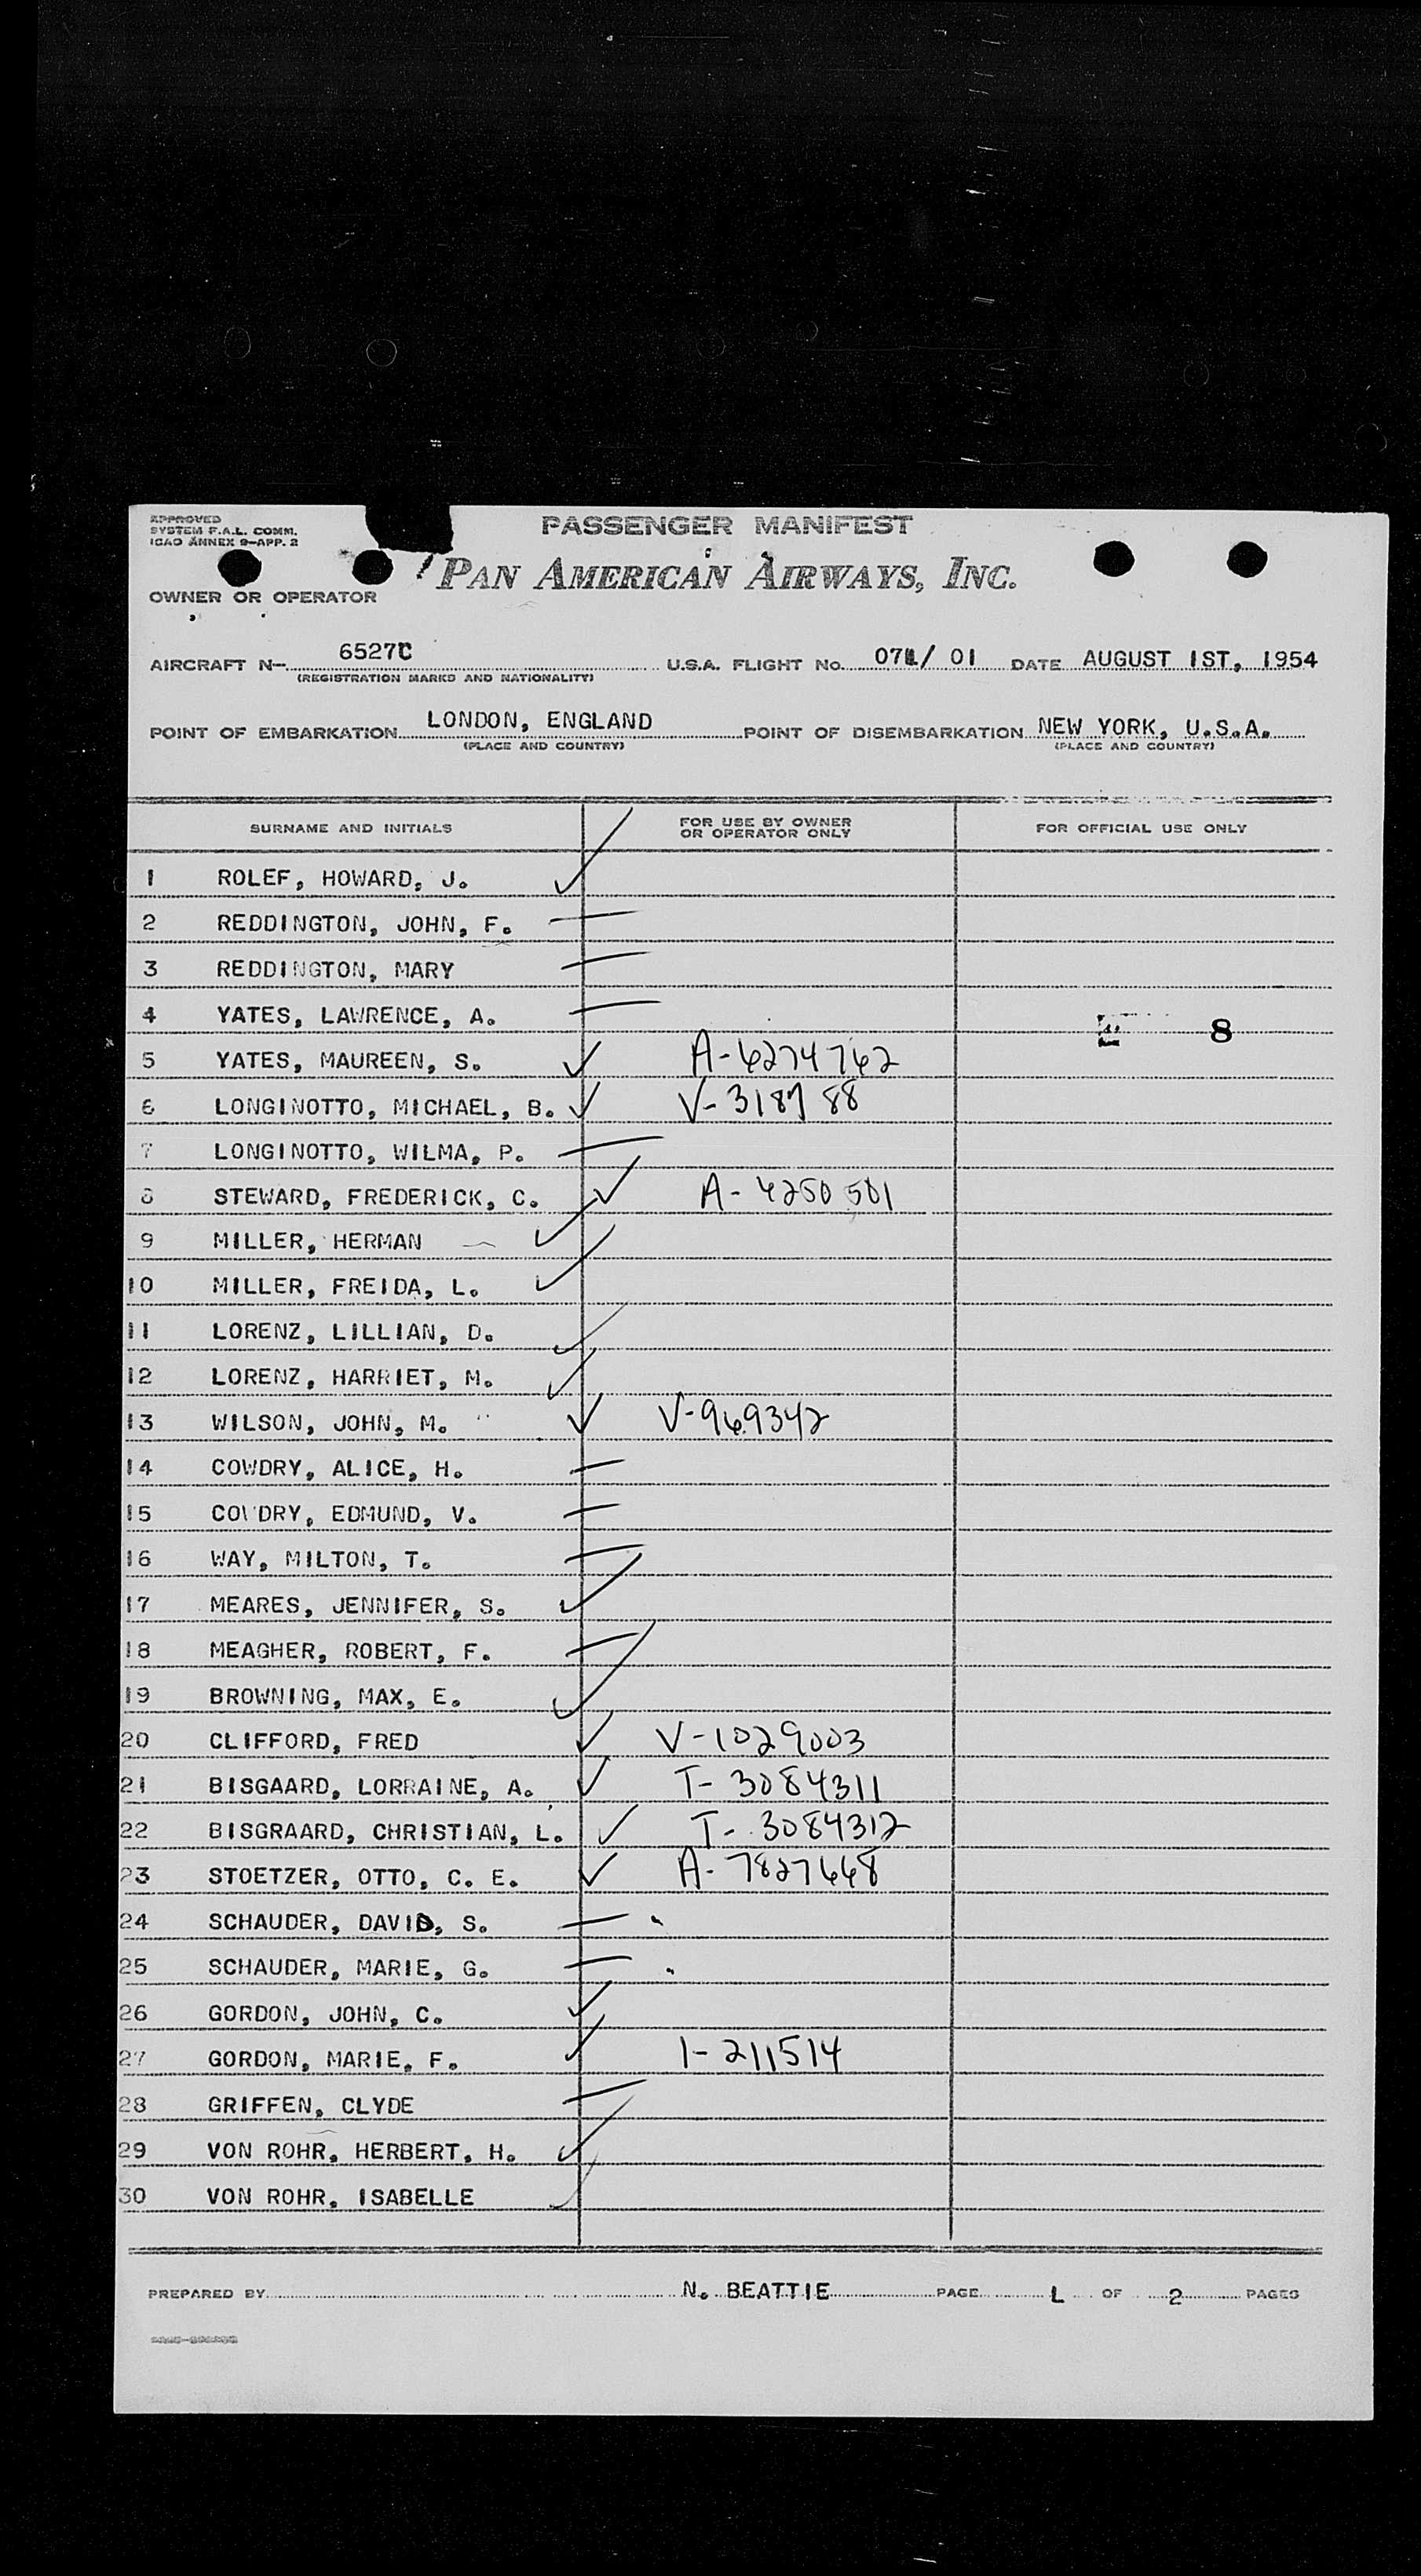 APPROVED
SYSTEM F.A.L. COMM.
ICAO ANNEX 9-APP. 2
PASSENGER MANIFEST
PAN AMERICAN AIRWAYS, INC.
OWNER OR OPERATOR
AIRCRAFT N- 6527C U.S.A. FLIGHT No. / 01 DATE AUGUST 1ST, 1954
(REGISTRATION MARKS AND NATIONALITY)
POINT OF EMBARKATION LONDON, ENGLAND POINT OF DISEMBARKATION NEW YORK, U.S.A.
(PLACE AND COUNTRY) (PLACE AND COUNTRY)
SURNAME AND INITIALS FOR USE BY OWNER OR OPERATOR ONLY FOR OFFICIAL USE ONLY
1 ROLEF, HOWARD, J.
2 REDDINGTON, JOHN, F.
3 REDDINGTON, MARY
4 YATES, LAWRENCE, A. 8
5 YATES, MAUREEN, S. A-6274762
6 LONGINOTTO, MICHAEL, B. V-318788
7 LONGINOTTO, WILMA, P.
8 STEWARD, FREDERICK, C. A-4250501
9 MILLER, HERMAN
10 MILLER, FREIDA, L.
11 LORENZ, LILLIAN, D.
12 LORENZ, HARRIET, M.
13 WILSON, JOHN, M. V-969342
14 COWDRY, ALICE, H.
15 COWDRY, EDMUND, V.
16 WAY, MILTON, T.
17 MEARES, JENNIFER, S.
18 MEAGHER, ROBERT, F.
19 BROWNING, MAX, E.
20 CLIFFORD, FRED V-1029003
21 BISGAARD, LORRAINE, A. T-3084311
22 BISGRAARD, CHRISTIAN, L. T-3084312
23 STOETZER, OTTO, C. E. A-7827668
24 SCHAUDER, DAVID, S.
25 SCHAUDER, MARIE, G.
26 GORDON, JOHN, C.
27 GORDON, MARIE, F. 1-211514
28 GRIFFEN, CLYDE
29 VON ROHR, HERBERT, H.
30 VON ROHR, ISABELLE
PREPARED BY N. BEATTIE PAGE L OF 2 PAGES